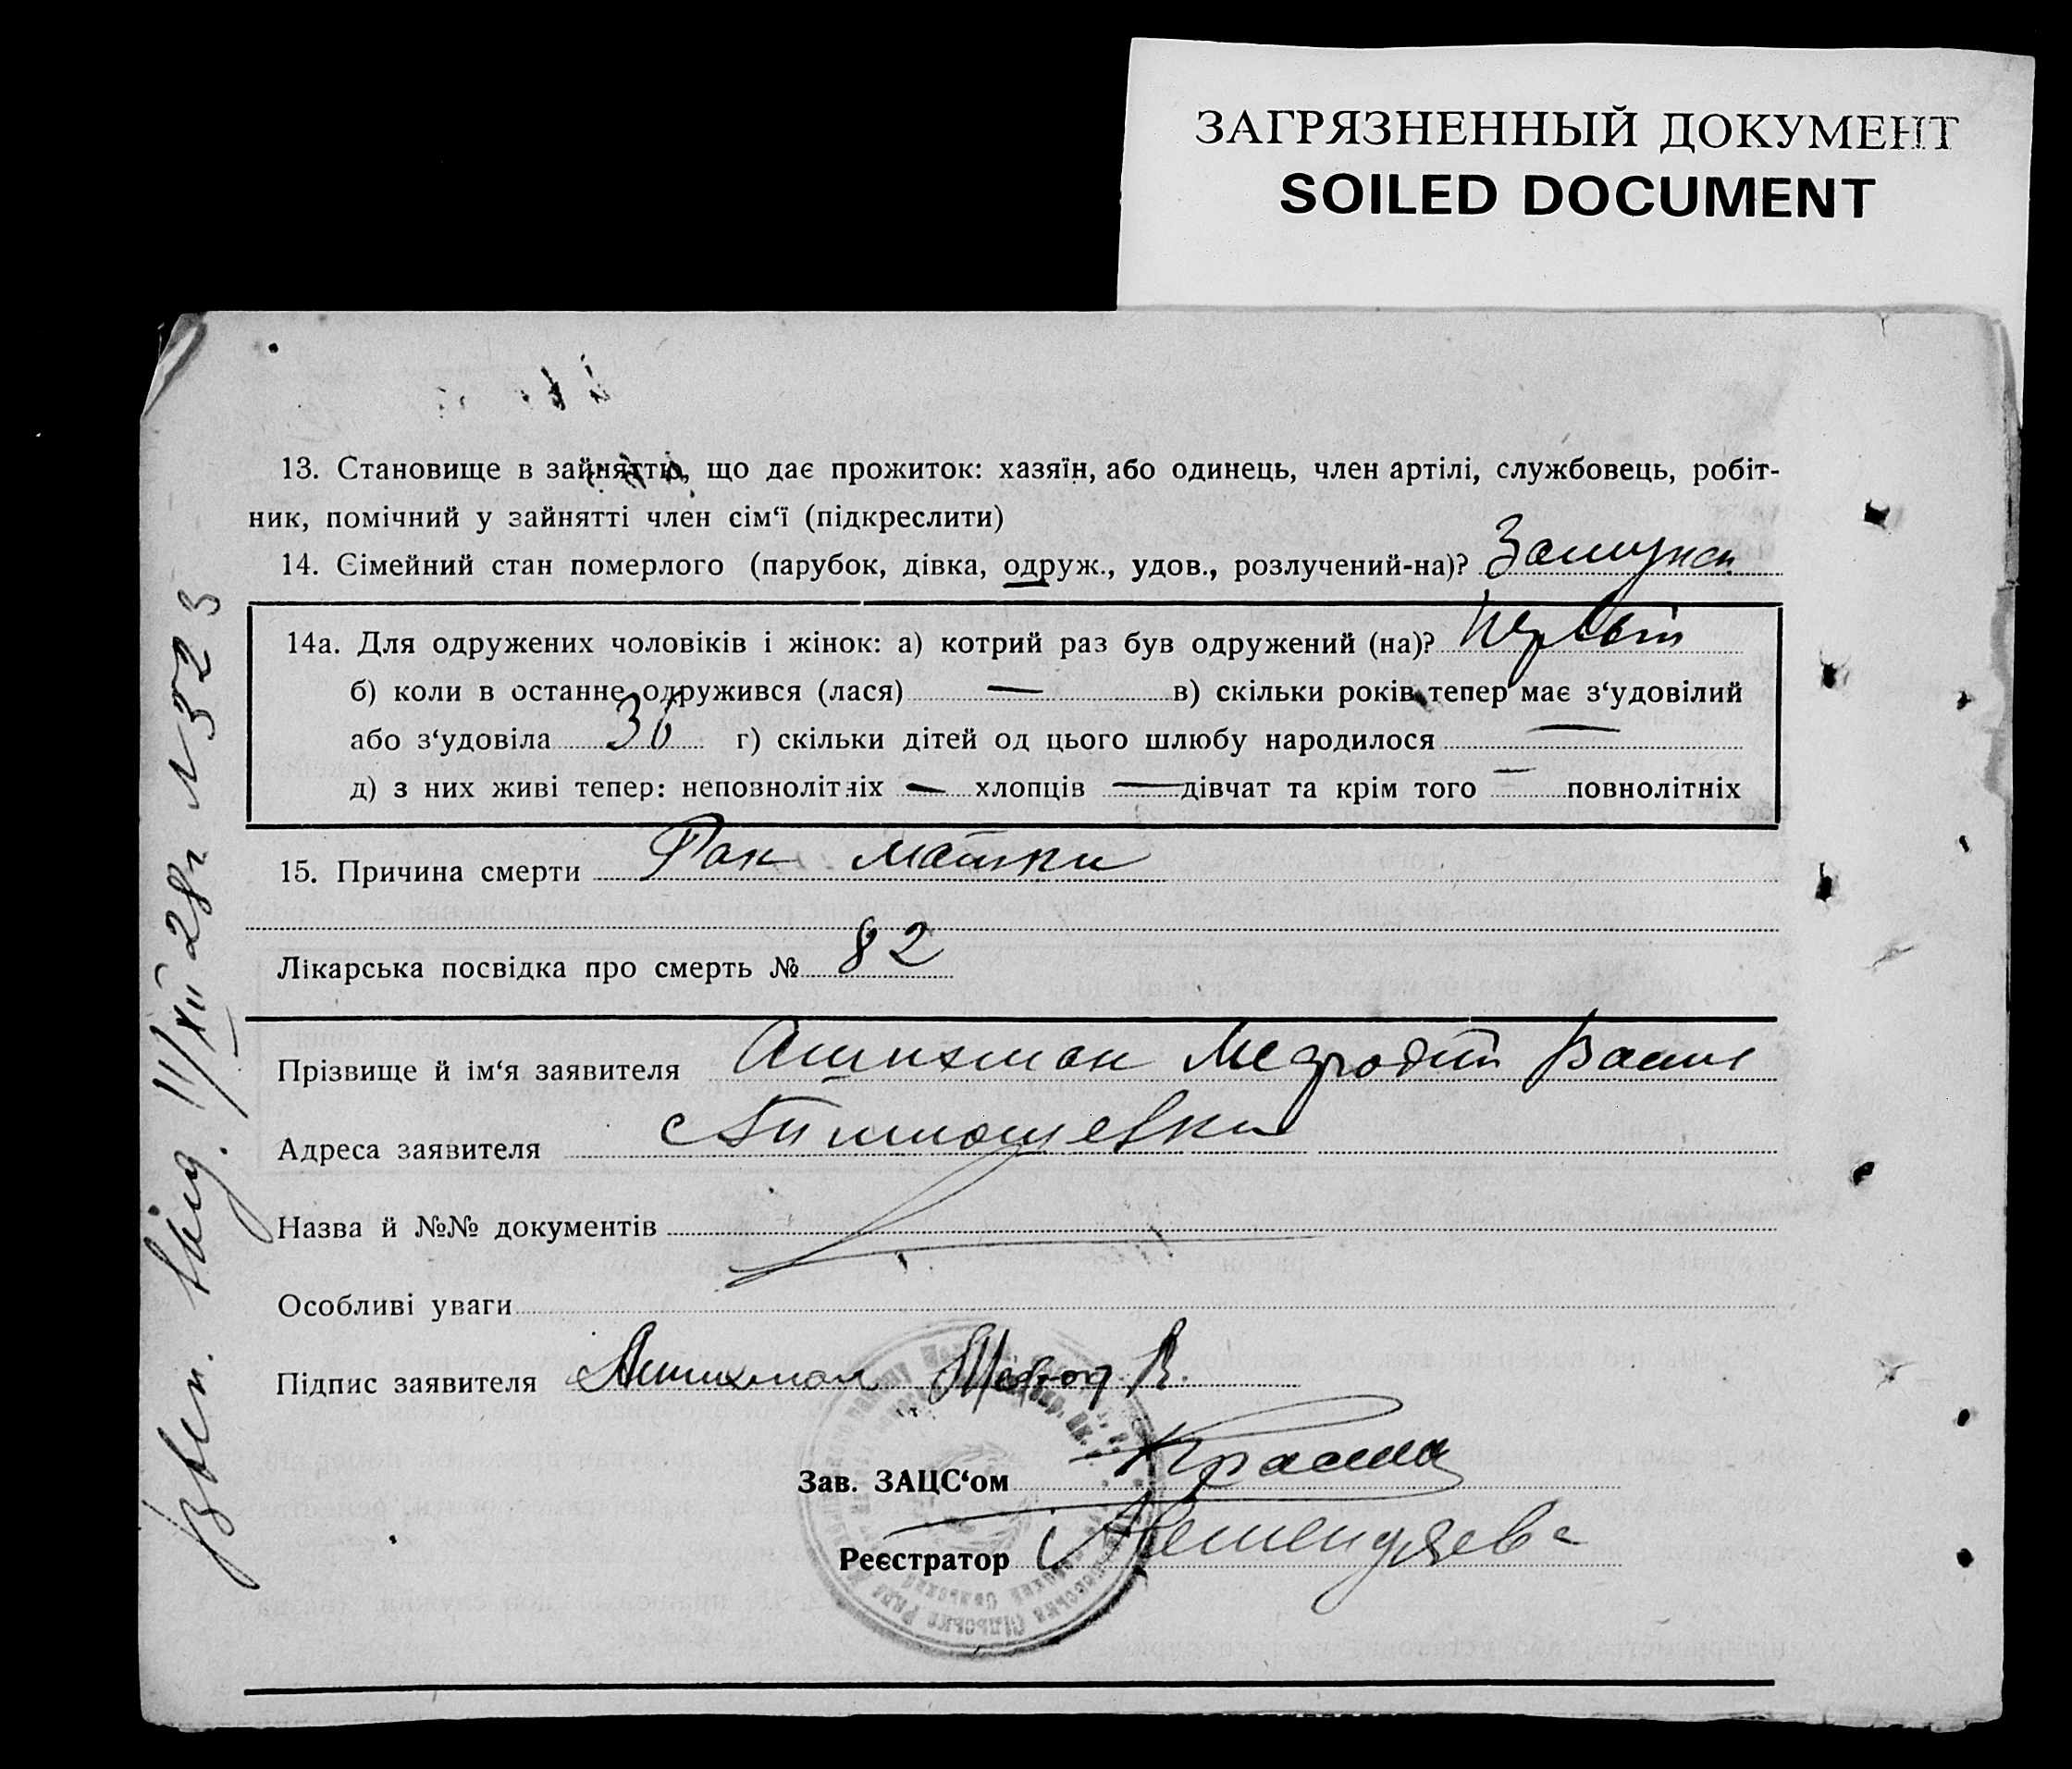 ЗАГРЯЗНЕННЫЙ ДОКУМЕНТ
SOILED DOCUMENT
13. Становище в зайняттю, що дає прожиток: хазяїн, або одинець, член артілі, службовець, робіт-
ник, помічний у зайнятті член сім‘ї (підкреслити)
14. Сімейний стан померлого (парубок, дівка, одруж., удов., розлучений-на)? Замужем
14а. Для одружених чоловіків і жінок: а) котрий раз був одружений (на)? первый
б) коли в останнє одружився (лася) — в) скільки років тепер має з‘удовілий
або з‘удовіла 36 г) скільки дітей од цього шлюбу народилося —
д) з них живі тепер: неповнолітніх — хлопців — дівчат та крім того — повнолітніх
15. Причина смерти Рак матки
Лікарська посвідка про смерть № 82
Прізвище й ім‘я заявителя Ашихман Мефодий
Адреса заявителя с Тимошевки
Назва й №№ документів
Особливі уваги
Підпис заявителя Ашихман Мефод В.
Зав. ЗАЦС‘ом
Реєстратор
11/XII 28 г № 523